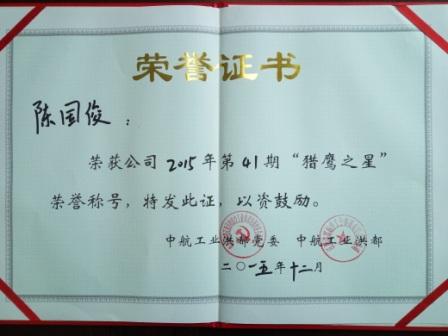 荣誉证书
陈国俊：
荣获公司2015年第41期“猎鹰之星”
荣誉称号，特发此证，以资鼓励。
中航工业洪都党委 中航工业洪都
二〇一五年十二月